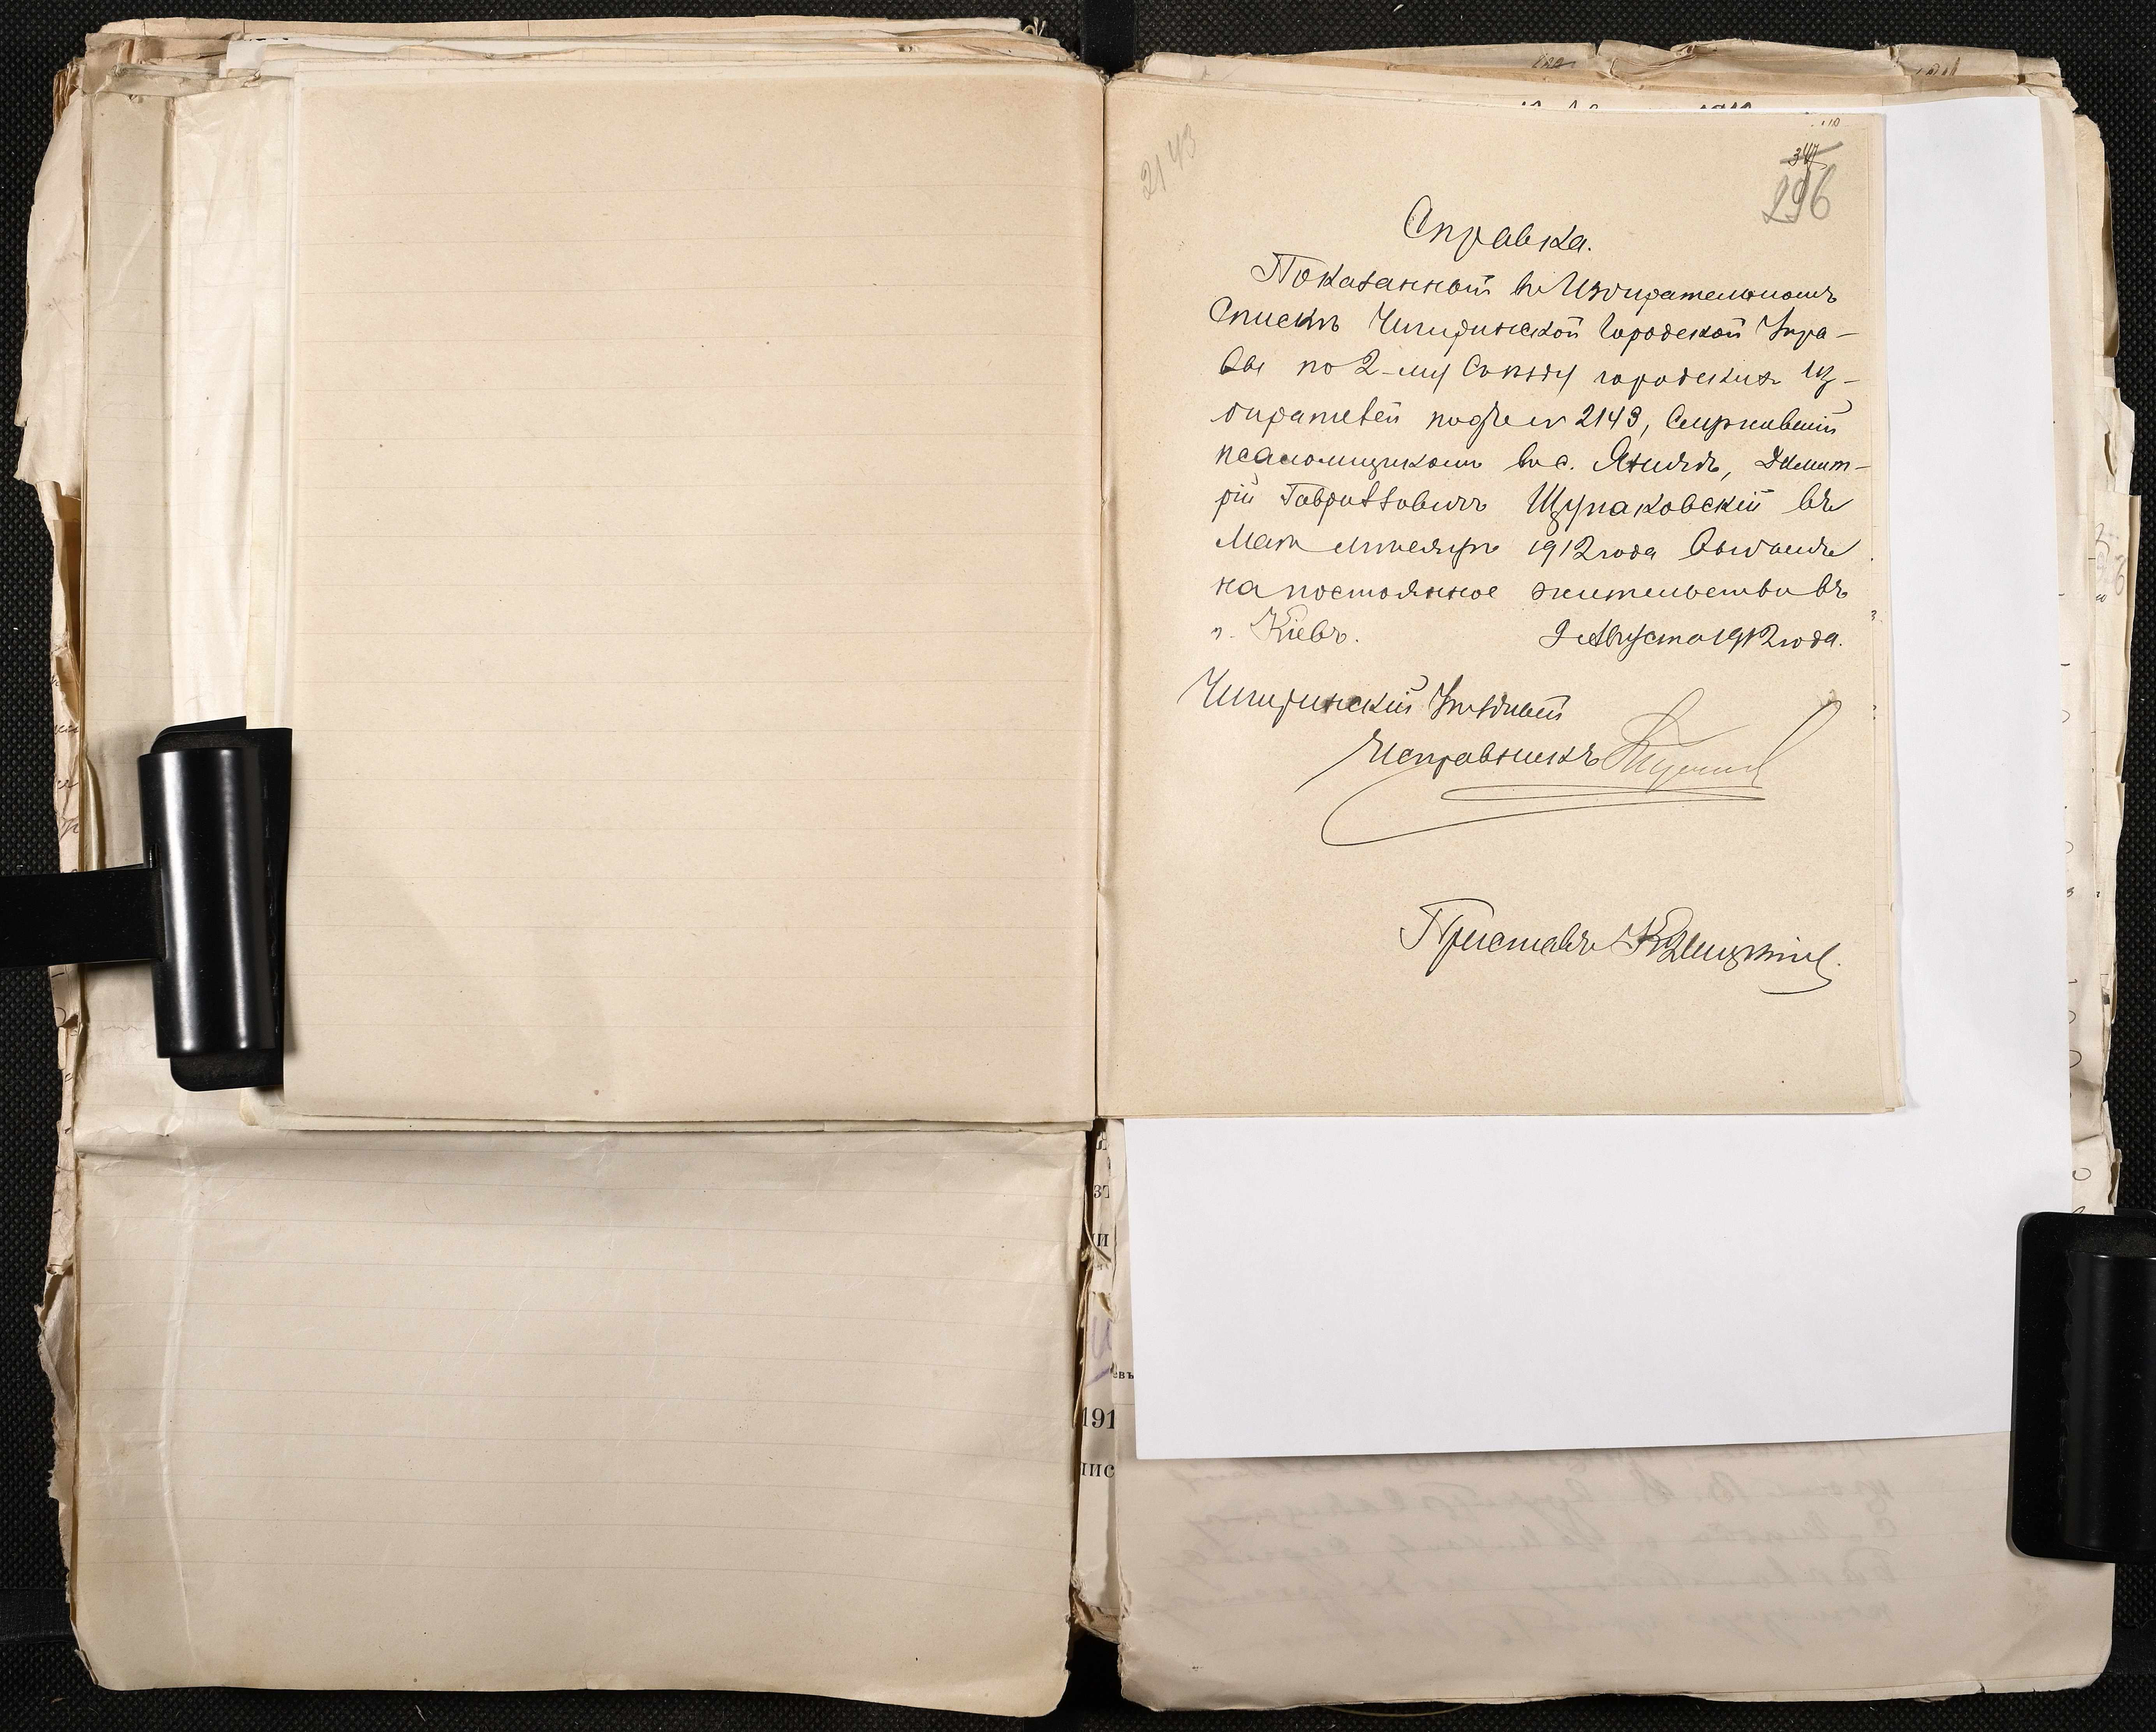 2143
347
296
Справка.
Показанный въ Избирательномъ
Спискѣ Чигиринской Городской Упра-
вы по 2-му Съѣзду городскихъ из-
бирателей подъ № 2143, Служившій
псаломщикомъ въ с. Яничѣ, Димит-
рій Гавриловичъ Щупаковскій въ
Маѣ мѣсяцѣ 1912 года выбылъ
на постоянное жительство въ
г. Кіевъ. 9 Августа 1912 года.
Чигиринскій Уѣздный
Исправникъ
Приставъ
191